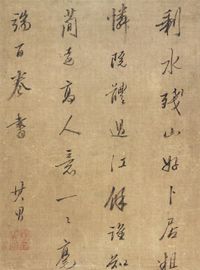 剩水殘山好卜居
憐院體過江餘誰知
簡遠高人意一〻毫
端百卷書 其昌